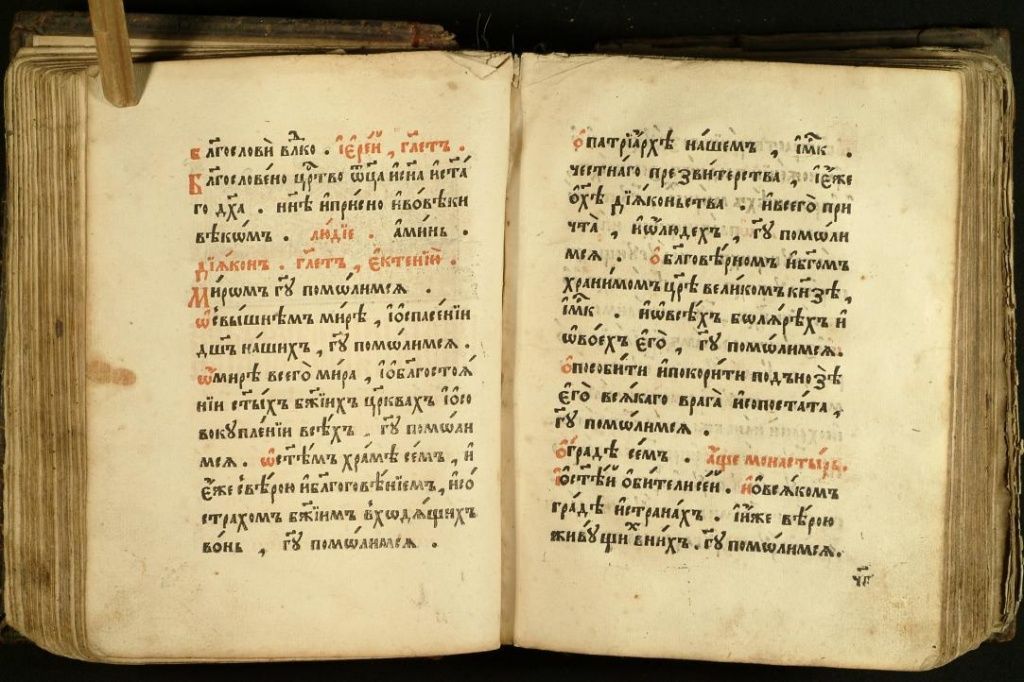 Блгословѝ влⷣко . і҆ере́й , гл҃етъ .
Блгослове́но црⷭ҇тво ѿц҃а и҆сн҃а и҆ст҃а́
го дх҃а . нн҃ѣ и҆при́сно и҆вовѣ́ки
вѣкѡ́мъ . лю́діе . а҆ми́нь .
Дія́конъ . гл҃етъ , є҆ктенїю̀ .
Ми́рѡмъ гд҇у помо́лимсѧ .
Ѡ҆свы́шнѣмъ ми́рѣ , і҆ѡ҆спасе́нїи
дш҃ъ на́шихъ , гд҇у помо́лимсѧ .
Ѡ҆ми́рѣ всего̀ ми́ра , і҆ѡ҆бл҃госто́ѧ
нїи ст҃ы́хъ бж҃їихъ цр҃квахъ і҆ѡ҆со
вокꙋпле́нїи всѣ́хъ . гд҇у помо́ли
мсѧ . Ѡ҆ст҃ѣ́мъ хра́мѣ се́мъ , и҆
є҆́же свѣ́рою и҆бл҃гоговѣ́нїемъ , и҆со́
стра́хомъ бж҃їимъ вхо́дѧщихъ
во́нь , гд҇у помо́лимсѧ .
Ѻ҆патрїа́рхѣ на́шемъ , і҆м҃к .
честна́го презви́терства , і҆є҆́же
ѻ҆хрⷭ҇ѣ̀ дїя́коньства . и҆всего̀ при
чта̀ , и҆ѡ҆лю́дехъ , гд҇у помо́ли
мсѧ . Ѻ҆бл҃говѣ́рномъ и҆бг҃омъ
храни́момъ цр҃ѣ̀ вели́комъ кн҃зѣ ,
і҆м҃к . и҆ѡ҆всѣ́хъ болѧ́рѣхъ и҆
ѡ҆во́ехъ є҆гѡ̀ , гд҇у помо́лимсѧ .
Ѻ҆посо́бити и҆покори́ти подъно́зѣ
є҆го̀ всѧ́каго врага̀ и҆сопоста́та ,
гд҇у помо́лимсѧ .
Ѻ҆гра́дѣ се́мъ . а҆́ще монасты́рь .
і҆ѻ҆ст҃ѣ́й ѻ҆би́тели се́й . и҆ѻ҆всѧ́комъ
гра́дѣ и҆страна́хъ . і҆и҆́же вѣ́рою
живꙋ́щихъ вни́хъ . гд҇у помо́лимсѧ .